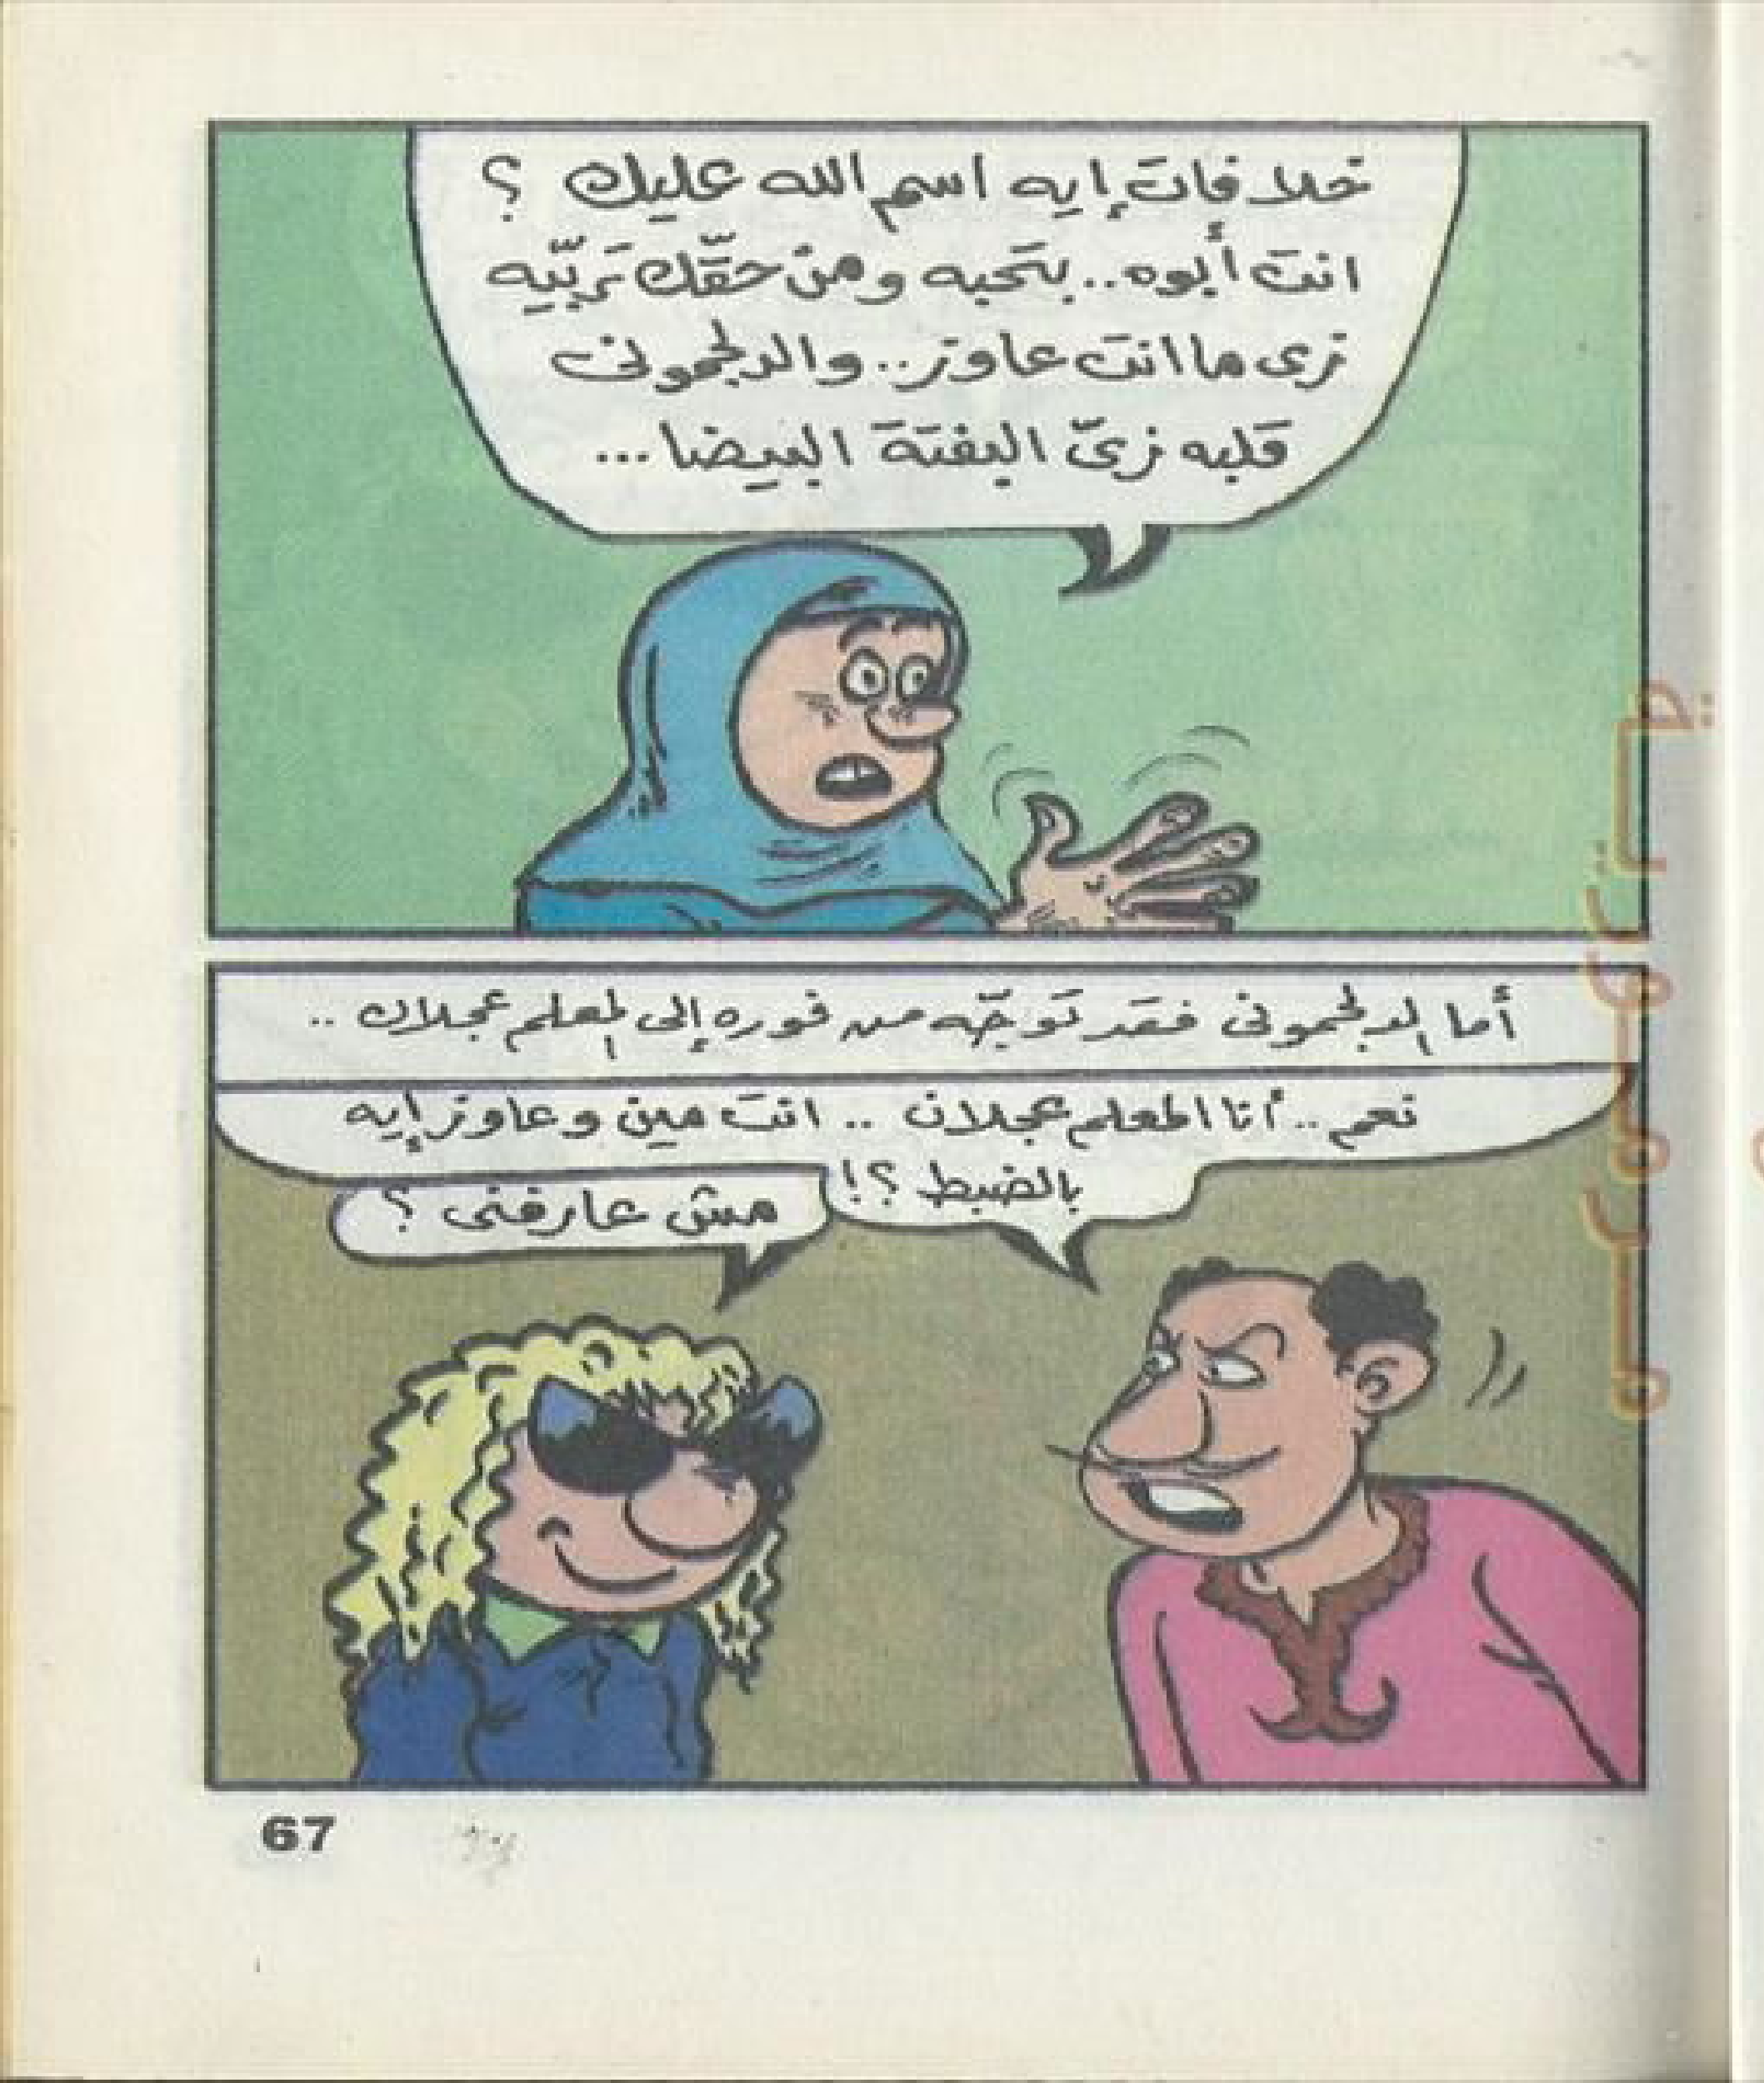 خلافات إيه اسم الله عليك ؟
انت أبوه.. بتحبه ومن حقّك تربّيه
زى ما انت عاوز.. والدلجمونى
قلبه زىّ البفتة البيضا...
أما الدلجمونى فقد توجّه من فوره إلى المعلم عجلان ..
نعم .. أنا المعلم عجلان .. انت مين وعاوز إيه
بالضبط ؟!
مش عارفنى ؟
67